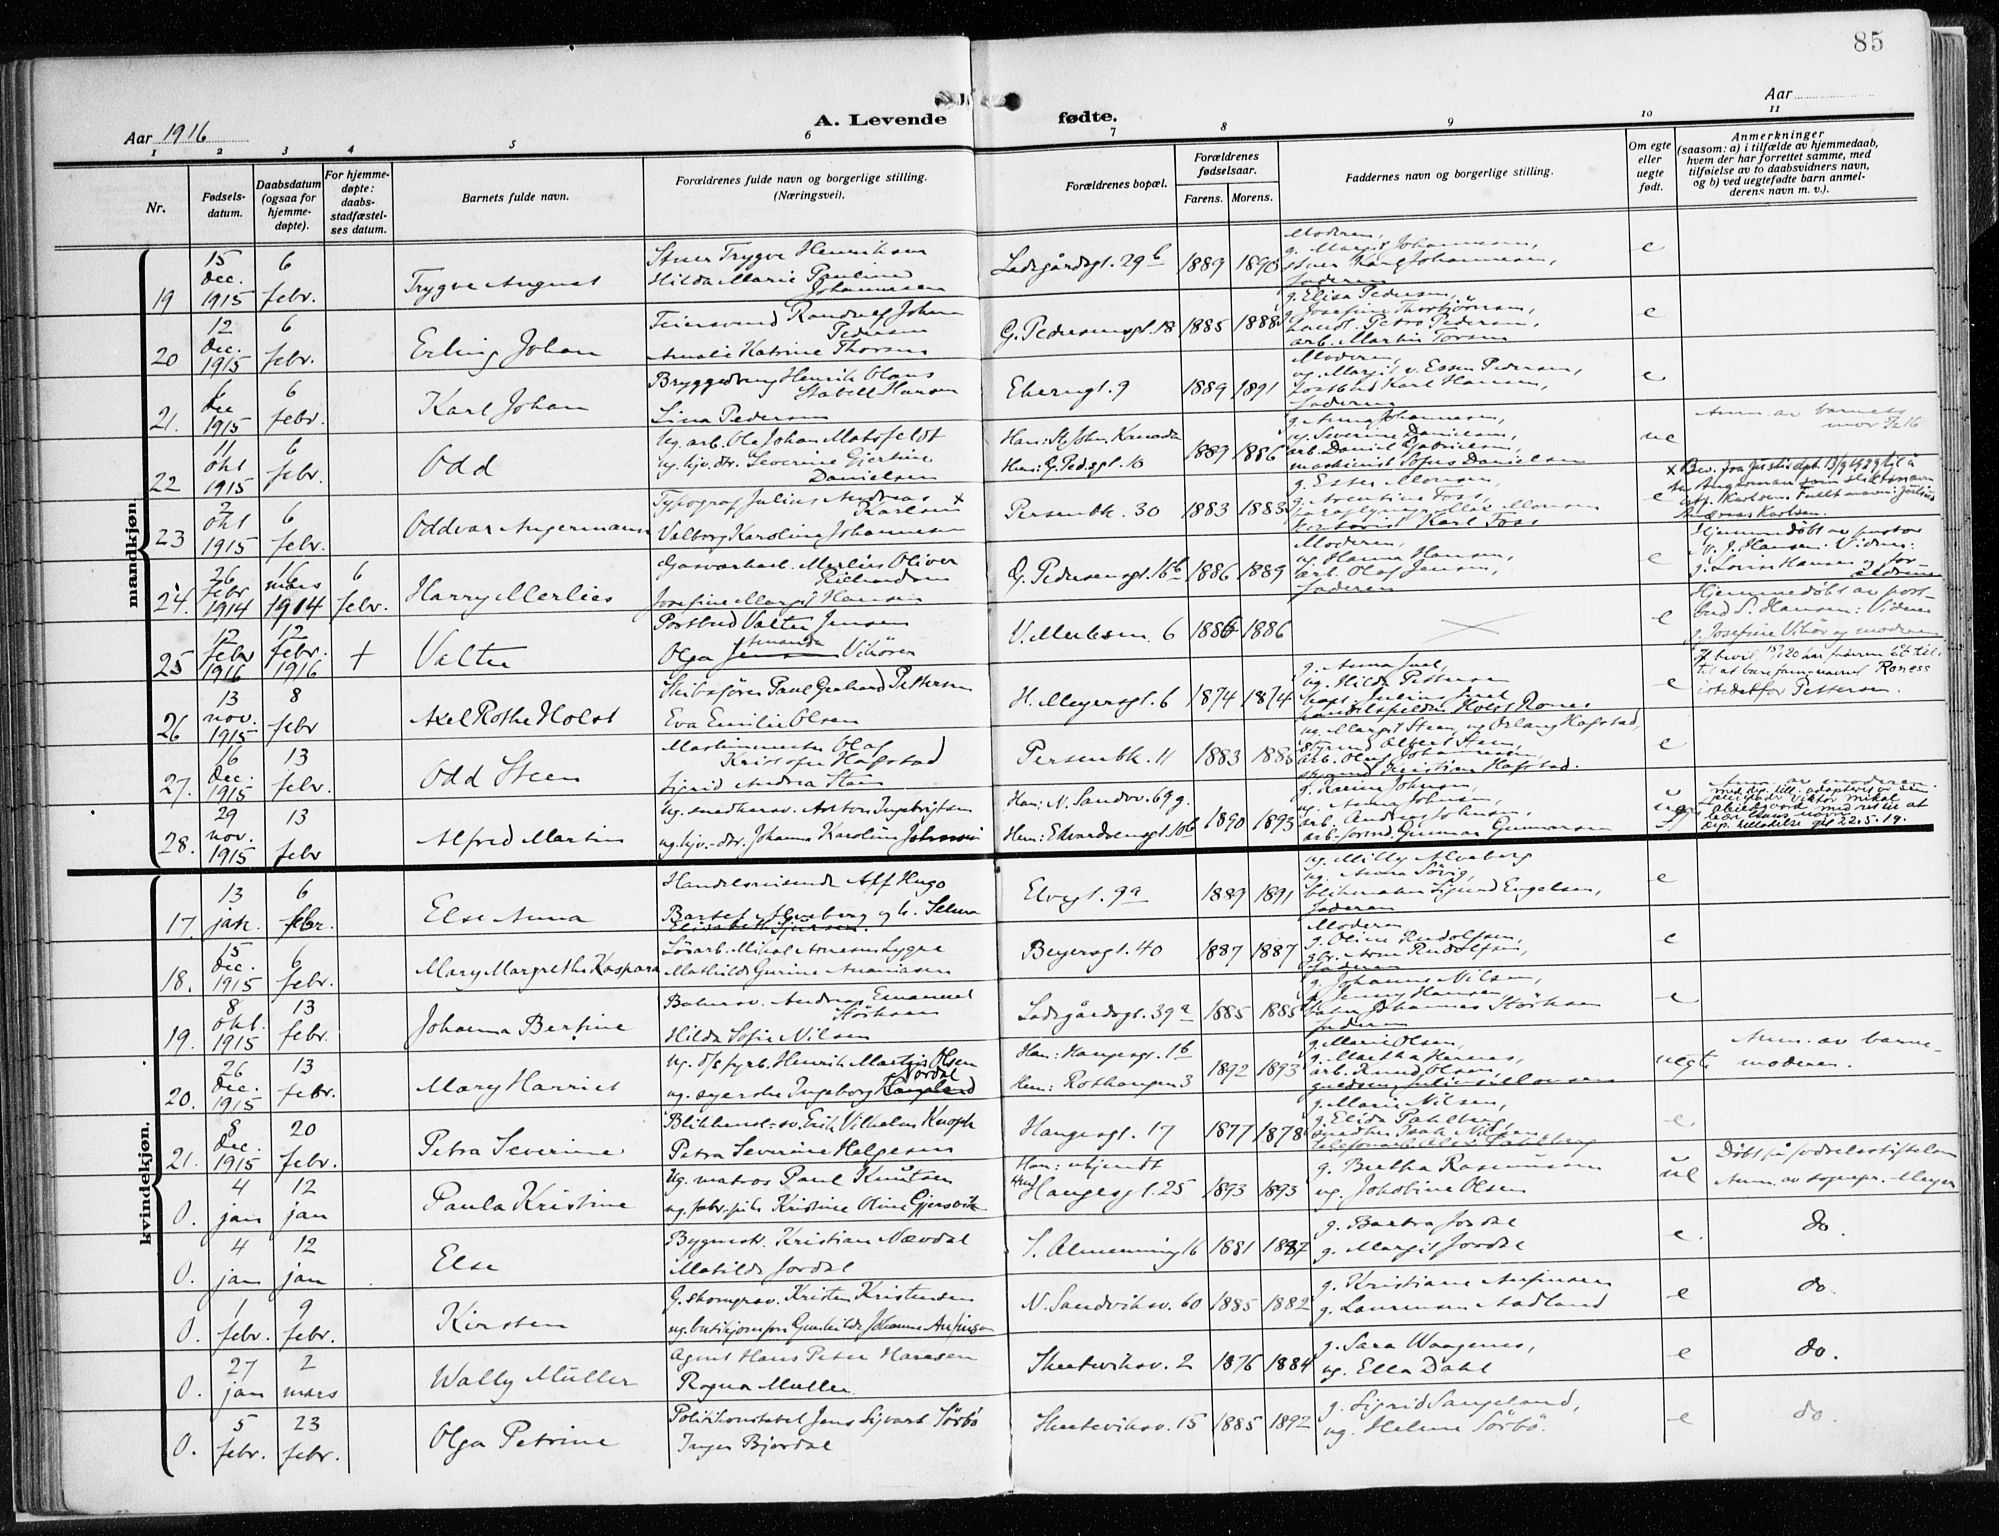 85
Aar 1916
A. Levende fødte.
Aar
1 2 3 4 5 6 7 8 9 10 11
Nr.
Fødsels-
datum.
Daabsdatum
(ogsaa for
hjemme-
døpte).
For hjemme-
døpte:
daabs-
stadfæstel-
ses datum.
Barnets fulde navn.
Forældrenes fulde navn og borgerlige stilling.
(Næringsvei).
Forældrenes bopæl.
Forældrenes
fødselsaar.
Farens. Morens.
Faddernes navn og borgerlige stilling.
Om egte
eller
uegte
født.
Anmerkninger
(saasom: a) i tilfælde av hjemmedaab,
hvem der har forrettet samme, med
tilføielse av to daabsvidners navn,
og b) ved uegtefødte barn anmel-
derens navn m. v.).
mandkjøn.
19
15
dec.
1915
6
febr.
Trygve August
Trygve Henriksen
Hilda Marie Pauline
Johannesen
Ladegårdsgt. 29b
1889 1890
Moderen,
g. Margit Johannesen,
Karl Johannesen,
faderen
e
20
12
dec.
1915
6
febr.
Erling Johan
Randulf Johan
Pedersen
Amalie Katrine Thorsen
G. Pedersensgt. 18
1885 1888
g. Elisa Pedersen,
g. Josefine Thorbjörnsen,
Petra Pedersen,
arb. Martin Torsen
e
21.
6
dec
1915
6
febr.
Karl Johan
Henrik Claus
Stabell Hansen
Lina Pedersen
1889 1891
Moderen,
ug. Margit v. Essen Pedersen,
postbud Karl Hansen,
faderen
e
22
11
okt
1915
6
febr.
Odd
Ug. arb. Ole Johan Matsfeldt
ug. hjv. dtr. Severine Gjertine
Danielsen
Han: St. John Kanada
Hun: G. Peds.gt. 18
1889 1886
g. Anna Johannesen,
ug. Severine Danielsen,
arb. Daniel Gabrielsen,
maskinist Sofus Danielsen
ue
Anm. av barnets
mor
23
2
okt
1915
6
febr.
Oddvar Angermann
Typograf Julius Andreas x
Karlsen
Valborg Karoline Johannesen
Persenbk. 30
1883 1883
g. Ester Monsen,
g. Arentine Foss,
Monsen
Karl Foss
e
x Bev. fra Justisdpt.
Angerman som slektsnavn
Karlsen. Fullt navn: Julius
Andreas Karlsen.
24.
26
febr
1914
mars
1914
6
febr.
Harry Merlies
Gasverkarb. Merlies Oliver
Rikhardsen
Josefine Margit Hansen
G. Pedersensgt. 16b
1886 1889
Moderen,
ug. Hanna Hansen,
arb. Olaf Jensen,
faderen
e
Hjemmedøbt av pastor
J. Hansen. Vidner:
g. Hansen og for-
ældrene
25
12
febr
1916
12
febr.
1916
+
Valter
Postbud Valter Jensen
Olga Amanda Vikören
V. Murbsm. 6
1886 1886
e
Hjemmedøbt av post-
bud S. Hansen: Vidner
g. Josefine Vikör og moderen
26
13
nov.
1915
8
febr
Axel Rothe Holst
Skibsfører Paul Gerhard Pettersen
Eva Emilie Olsen
H. Meyersgt. 6
1874 1874
g. Anna Juul,
ug. Hilda Pettersen
Julius Juul
Holst Rones
e
Roness
istedetfor Pettersen.
27.
16
dec.
1915
13
febr.
Odd Steen
Maskinmester Olaf
Kristofer Hafstad
Sigrid Andrea Steen
Persenbk. 11
1883 1885
ug. Margit Steen, ug. Hafstad,
Albert Steen,
arb. Olaf Johannesen,
Kristian Hafstad.
e
28.
29
nov.
1915
13
febr
Alfred Martin
Ug. snedkersv. Anton Ingebrigtsen
ug. hjv.-dtr. Johanna Karoline Johnsen
Han: N. Sandvv. 69 g.
Hun: Edvardsensgt. 10b
1890 1893
g. Karine Johnsen,
ug. Anna Johnsen,
arb. Andreas Johnsen,
arb. Gunnar Gunnarsen
Anm. av moderen
Viktor Mikal
bære hans navn
22.5.19.
kvindekjøn.
17.
13
jan.
6
febr.
Else Anna
Handelsreisende Alf Hugo
Alveberg og h. Selma
Elisabeth
Elvegt. 9a
1889 1891
ug. Milly Alveberg
ug. Anna Sörig,
blikmaker Sigurd Engelsen,
faderen
e
18.
15
dec.
1915
6
febr.
Mary Margrethe Kaspara
Mikal Arnesen Lygre
Mathilde Gurine Ananiasen
Beyersgt. 40
1887 1887
Moderen
g. Oline Rudolfsen,
Arne Rudolfsen,
faderen
e
19.
8
okt.
1915
13
febr.
Johanna Bertine
Bakersv. Andreas Emanuel
Störksen
Hilda Sofie Nilsen
Ladegårdsgt. 39a
1885 1885
g. Johanne Nilsen,
g. Jenny Hansen,
Johannes Störksen
faderen
e
20.
26
dec.
1915
13
febr.
Mary Harriet
ug. d/s fyrb. Henrik Martin Olsen
Jordal
ug. syerske Ingeborg Haugland
Han: Haugesgt. 1b
Hun: Rothaugen 3
1892 1893
g. Marie Olsen,
g. Martha Hernes,
arb. Knud Olsen,
Monsen
uegt
Anm. av barne-
moderen.
21.
8
dec.
1915
20
febr.
Petra Severine
Blikkensl.-sv. Erik Vilhelm Knoph
Petra Severine Helgesen
Haugesgt. 17
1877 1878
g. Marie Nilsen,
g. Elida Pahlberg
snedker Isak Nilsen
Pahlberg
e
0.
4
jan
12
jan
Paula Kristine
Ug. matros Paul Knutsen
ug. fabr.-pike Kristine Oline Gjersvik
Han: ukjendt
Hun: Haugesgt. 25
1893 1893
g. Bertha Rasmussen
ug. Jakobine Olsen
ue
Døbt på fødselsstiftelsen
Anm. av sognepr. Meyer
0.
4
jan
12
jan
Else
Bygmestr. Kristian Nævdal
Matilde Jordal
S. Almenning 16
1881 1887
g. Barbra Jordal
g. Margit Jordal
e.
do.
0.
1
febr.
9
febr.
Kirsten
G. skomgrsv. Kristen Kristensen
ug. butikjomfru Gunhilde Johanne Anfinsen
N. Sandviksv. 60
1885 1882
g. Kristiane Anfinsen
g. Laurense Aadland
e
do.
0.
27
jan
2
mars
Wally Müller
Agent Hans Peter Hansen
Ragna Müller
Skuteviksv. 2
1876 1884
g. Sara Waagenes,
ug. Ella Dahl
e
do.
0.
5
febr.
23
febr.
Olga Petrine
Politikonstabel Jens Sigvart Sörbö
Inger Bjordal
Skuteviksv. 15
1885 1892
g. Sigrid Saugeland,
ug. Helene Sörbö.
e
do.